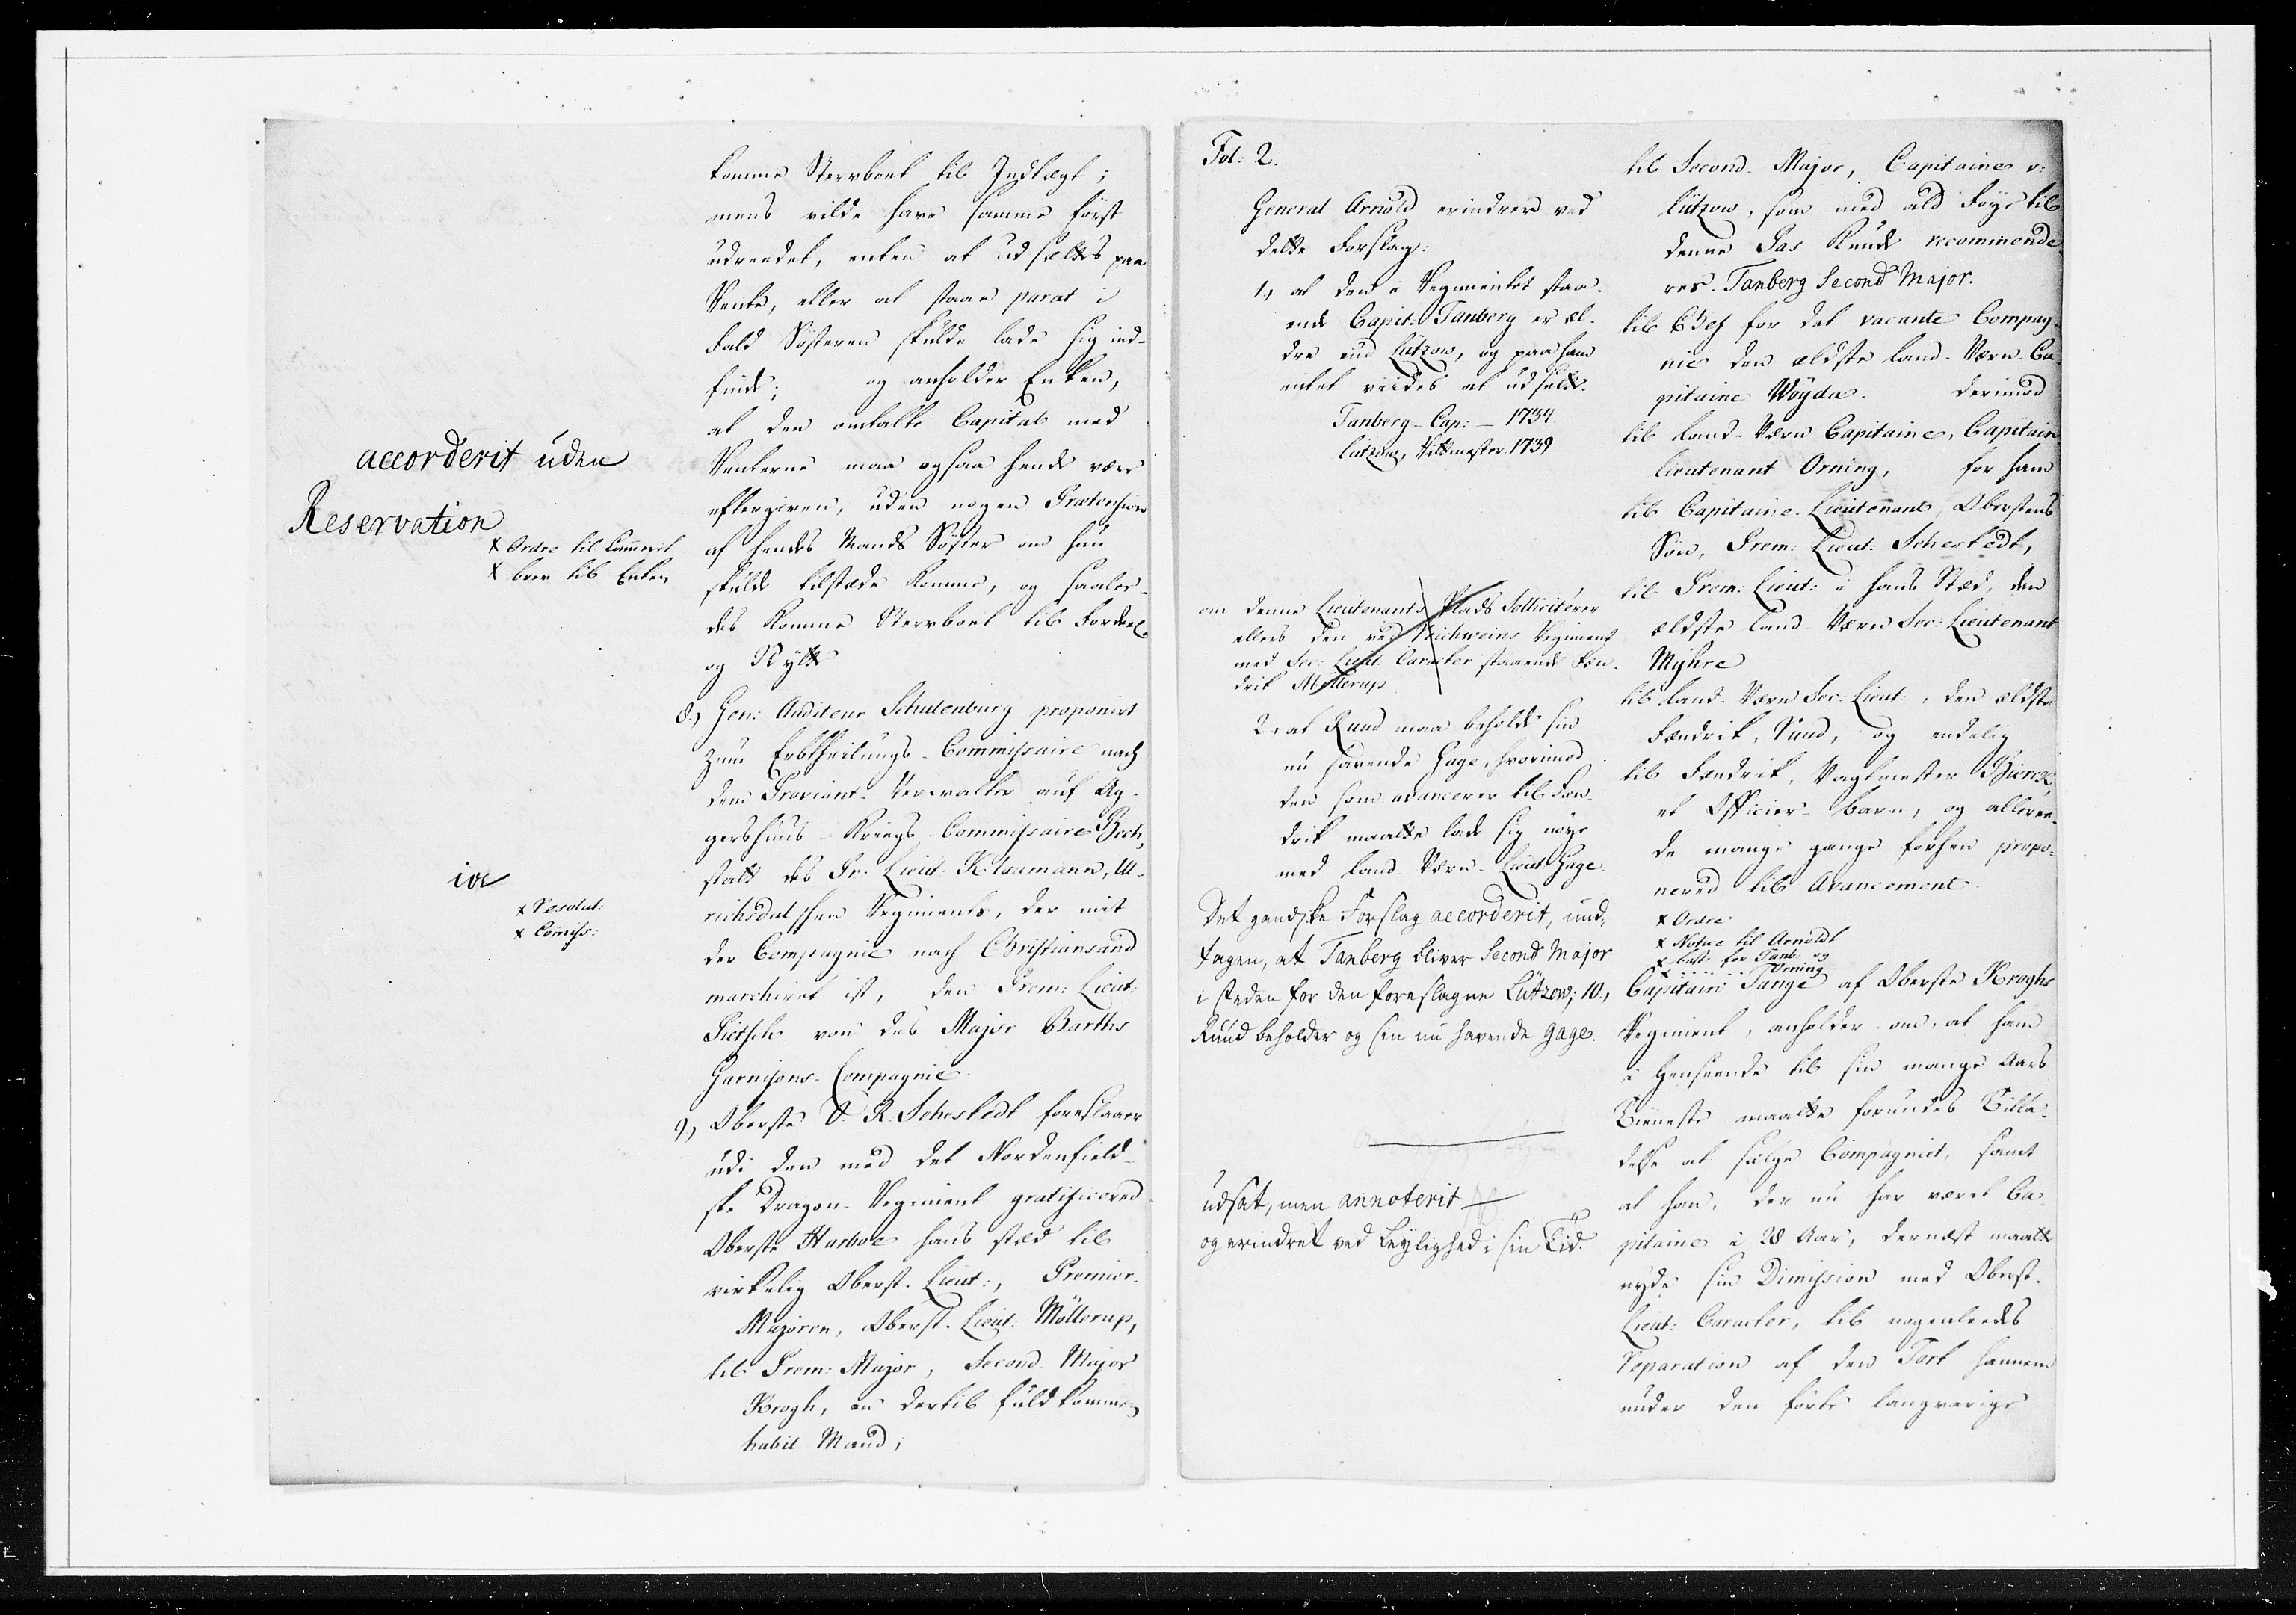 komme Stervboet til Indtægt;
mens vilde have samme først
udreedet, enten at udsættes paa
Rente, eller at staae parat i
Fald Søsteren skulde lade sig ind-
finde; og anholder Enken,
at den omtalte Capital med
Renterne maa ogsaa hende være
eftergiven, uden nogen Prætension
af hendes Mands Søster om hun
skulde tilstæde komme, og saale-
des komme Stervboet til Fordeel
og Nytte
accorderit uden
Reservation
x Ordre til Commerit
x brev til Enken
8., Gen: Auditeur Schulenburg proponirt
zum Erbtheilungs-Commissaire nach
dem Proviant-Verwalter auf Ag-
gershuus Kriegs-Commissaire Bech,
statt des Pr: Lieut: Klaumann, Ul-
richsdalschen Regiments, der mit
der Compagnie nach Christiansand
marchiret ist, den Prem: Lieut:
Pietsch von des Major Barths
Garnisons-Compagnie.
ia
x Resolut:
x Comiss:
9, Oberste O. R. Schestedt foreslaaer
udi den med det Nordenfield-
ske Dragon-Regiment gratificered
Oberste Harboe hans stæd til
virkelig Oberst-Lieut:, Premier-
Majoren, Oberst-Lieut: Möllerup,
til Prem: Major, Second-Major
Krogh, en dertil fuldkommen
habil Mand;
Fol: 2.
General Arnold erindrer ved
dette Forslag:
1., at den i Regimentet staa-
ende Capit: Tanberg er æl-
dre end Lützow, og paa ham
intet viides at udsætte.
Tanberg-Cap: - 1734
Lützow, Rittmester 1739.
om denne Lieutenants Plads Solliciterer
ellers den ved Reichweins Regiment
med Sec: Lieut: Caracter staaende Fæn-
drik Möllerup
2., at Ruud maa beholde sin
nu havende Gage, hvorimod
den som avancerer til Fæn-
drik maatte lade sig nøye
med Land-Værn-Lieut: Gage.
Det gandske Forslag accorderit, und-
tagen, at Tanberg bliver Second Major
i steden for den foreslagne Lützow;
Ruud beholder og sin nu havende gage.
udsat, men annoterit
og erindret ved Leylighed i sin Tid.
til Second-Major, Capitaine v:
Lützow, som med ald Føye til
denne Pas kunde recommende-
res. Tanberg Second Major.
til Chef for det vacante Compag-
nie den ældste Land-Værn-Ca-
pitaine Wøyda. derimod
til Land-Værn Capitaine, Capitain
Lieutenant Orning, for ham
til Capitaine-Lieutenant, Oberstens
Søn, Prem: Lieut: Schestedt,
til Prem: Lieut: i hans Stæd, den
ældste Land-Værn Sec: Lieutenant
Myhre
til Land-Værn Sec: Lieut:, den ældste
Fændrik, Ruud, og endelig
til Fændrik, Vagtmester Bierck
et Officier-barn, og alleree-
de mange gange forhen propo-
nered til Avancement.
x Ordre
x Notice til Arnoldt
x best: for Tanb: og
x . . . . . . . Orning
10., Capitain Tange af Oberste Kroghs
Regiment, anholder om, at ham
i Henseende til sin mange Aars
Tieneste maatte forundes Tilla-
delse at sælge Compagniet, samt
at han, der nu har været Ca-
pitaine i 28 Aar, dernæst maatte
nyde sin Dimission med Oberst-
Lieut: Caracter, til nogenleedes
Reparation af den Tort hannem
under den førte langvarige